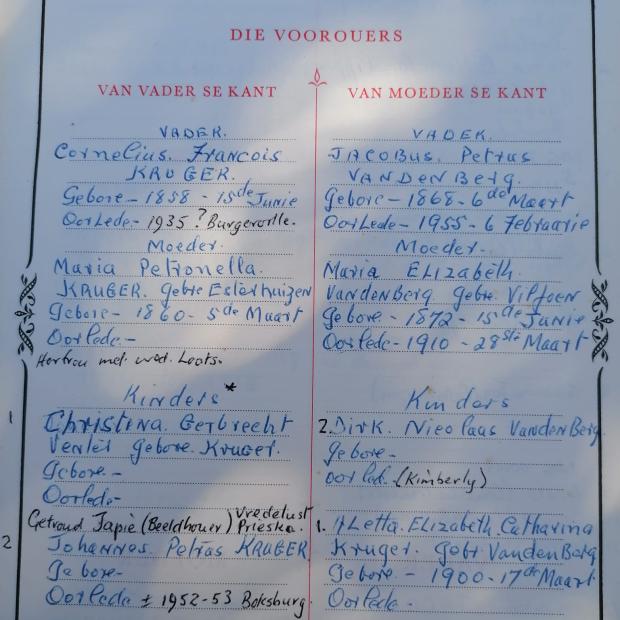 DIE VOOROUERS
VAN VADER SE KANT
VADER.
Cornelius. Francois
KRUGER.
Gebore - 1858 - 15de Junie
Oorlede - 1935? Burgerville.
Moeder.
Maria Petronella.
KRUGER. gebre Esterhuizen
Gebore - 1860 - 5de Maart
Oorlede -
Hertrou met wed. Loots.
Kinders *
1 Christina. Gerbrecht
Venter gebore. Kruger.
Gebore. -
Oorlede -
Getroud Japie (Beeldhouer) Vredelust Prieska.
2 Johannes. Petrus KRUGER
Gebore -
Oorlede ± 1952-53 Boksburg.
VAN MOEDER SE KANT
VADER.
JACOBUS. Petrus
VANDENBerg.
Gebore - 1868 - 6de Maart
Oorlede - 1955 - 6 Februarie
Moeder.
Maria ELIZAbeth.
VandenBerg gebre. Viljoen
Gebore - 1872 - 15de Junie
Oorlede - 1910 - 28ste Maart
Kinders
2. Dirk. Nicolaas VandenBerg
gebore -
oorled. (Kimberly)
1. ALetta. Elizabeth. Catharina
Kruger. gebr VandenBerg
Gebore. - 1900 - 17de Maart
Oorlede -